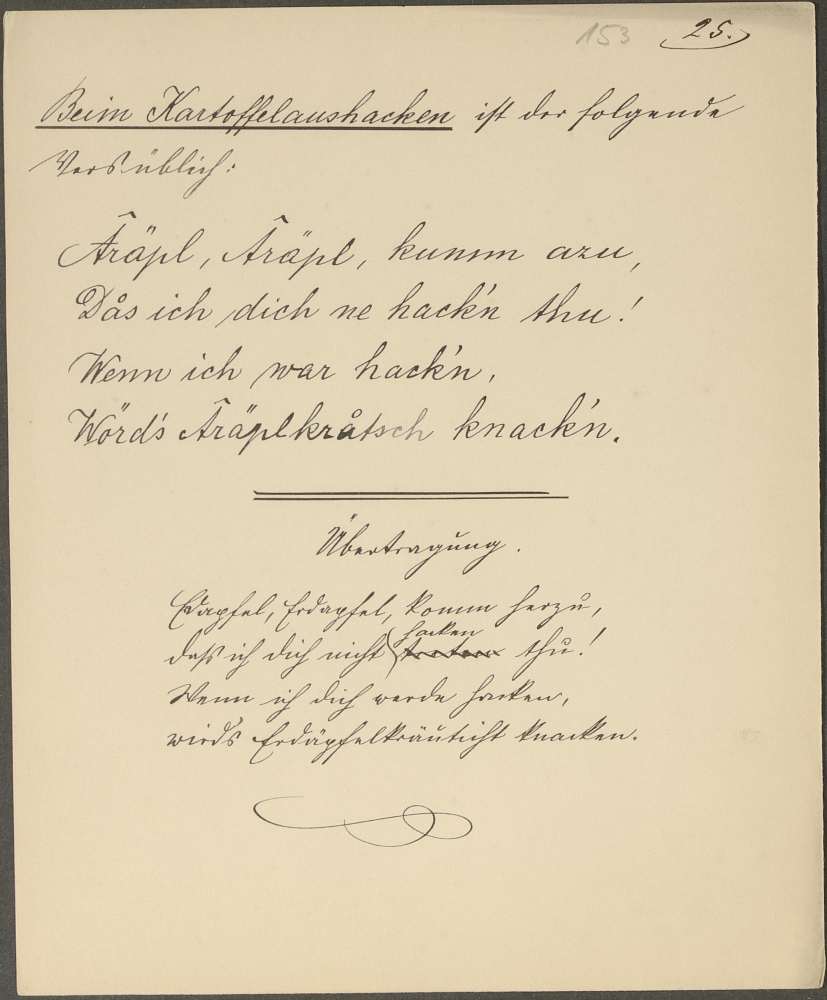 153 25.
Beim Kartoffelaushacken ist der folgende
Vers üblich:
Âräpl, Âräpl, kumm azu,
Dås ich dich ne hack'n thu!
Wenn ich war hack'n,
Wörd's Âräplkråtsch knack'n.
Übertragung.
Erdapfel, Erdapfel, komm herzu,
hacken
daß ich dich nicht treten thu!
Wenn ich dich werde hacken,
wird's Erdäpfelkräuticht knacken.